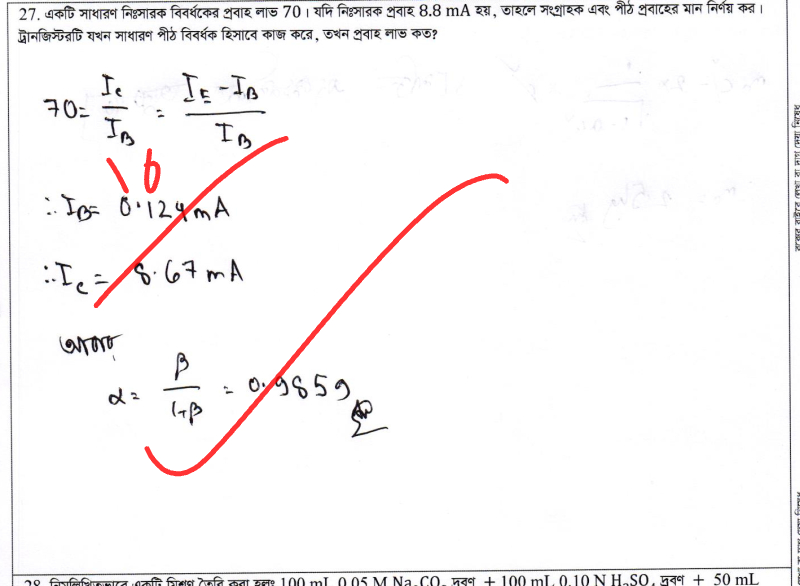 27. একটি সাধারণ নিঃসারক বিবর্ধকের প্রবাহ লাভ 70। যদি নিঃসারক প্রবাহ 8.8 mA হয়, তাহলে সংগ্রাহক এবং পীঠ প্রবাহের মান নির্ণয় কর।
ট্রানজিস্টরটি যখন সাধারণ পীঠ বিবর্ধক হিসাবে কাজ করে, তখন প্রবাহ লাভ কত?
70 = I_c / I_B = I_E - I_B / I_B
∴ I_B = 0.124 mA
∴ I_c = 8.67 mA
আবার,
α = β / 1+β = 0.9859
28. নিম্নলিখিতভাবে একটি মিশ্রণ তৈরি করা হলঃ 100 mL 0.05 M Na₂CO₃ দ্রবণ + 100 mL 0.10 N H₂SO₄ দ্রবণ + 50 mL